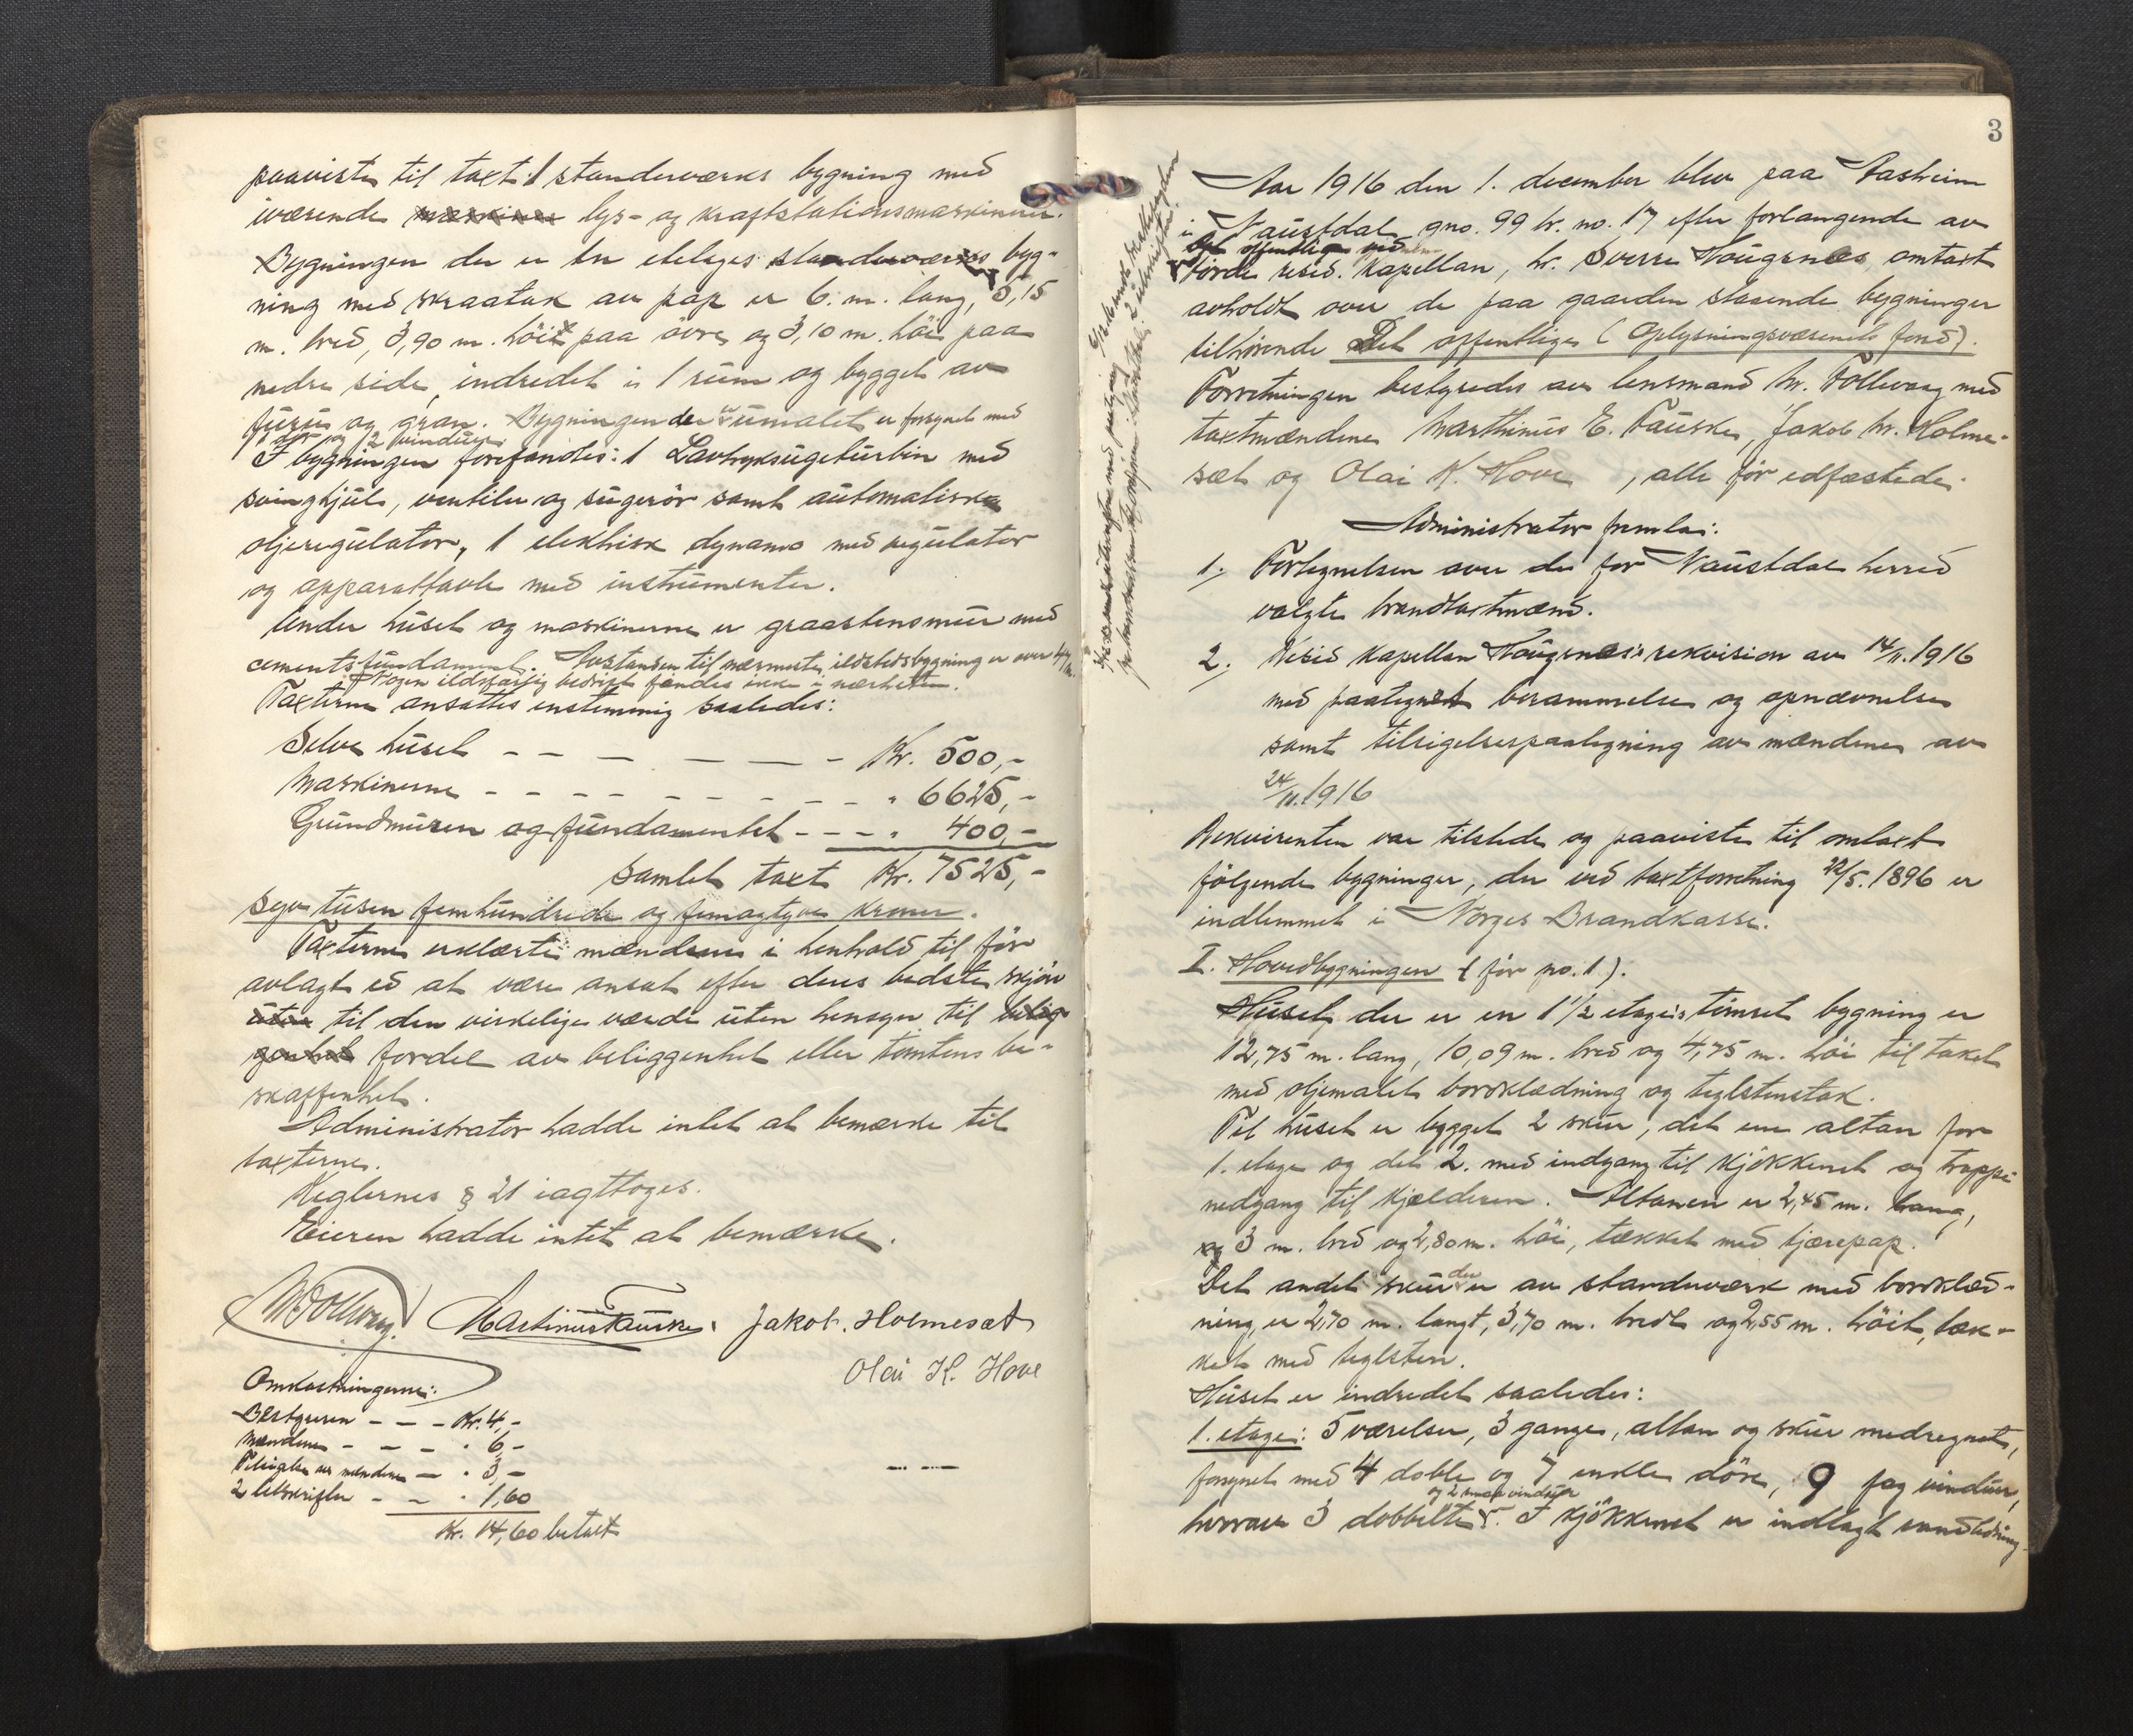 paaviste til taxt: 1 standerværks bygning med
iværende maskiner lys- og kraftstationsmaskiner.
Bygningen der er en etetages standerværks byg-
ning med skraatak av pap er 6. m. lang, 5,15
m. bred, 3,90 m. höi paa övre og 3,10 m. höi paa
nedre side, indredet i 1 rum og bygget av
furu og gran. Bygningen der er umalet er forsynet med
1 dör og 2 vinduer
I bygningen forefandtes: 1 Lavtryksugeturbin med
svinghjul, ventiler og sugerör samt automatisk
oljeregulator, 1 elektrisk dynamo med regulator
og apparattavle med instrumenter.
Under huset og maskinerne er graastensmur med
cementsfundament. Avstanden til nærmeste ildstedsbygning er over 47 m.
Nogen ildsfarlig bedrift fandtes ikke i nærheten.
Taxterne ansattes enstemmig saaledes:
Selve huset - - - - - - - Kr. 500,-
Maskinerne - - - - - - - - - " 6625,-
Grundmuren og fundamentet - - - " 400,-
Samlet taxt Kr. 7525,-
Syv tusen femhundrede og femogtyve kroner.
Taxterne erklærte mændene i henhold til för
avlagt ed at være ansat efter deres bedste skjön
uten til den virkelige værdi uten hensyn til belig-
genhet fordel av beliggenhet eller tomtens be-
skaffenhet.
Administrator hadde intet at bemærke til
taxterne.
Reglernes § 21 iagttoges.
Eieren hadde intet at bemærke.
Martinus Fauske. Jakob. Holmesæt
Olai K. Hove
Omkostningerne:
Bestyreren - - - Kr. 4,-
Mændene - - - " 6,-
Tilsigelse av mændene - " 3,-
2 utskrifter - - " 1,60
Kr. 14,60 betalt
3
Aar 1916 den 1. december blev paa Aasheim
i Naustdal gno. 99 br. no. 17 efter forlangende av
Det offentlige ved
Förde resid. Kapellan, hr. Sverre Hougsnæs, omtaxt
avholdt over de paa gaarden staaende bygninger
tilhörende Det offentlige (Oplysningsvæsenets fond).
Forretningen bestyredes av lensmand M. Tollevaag med
taxtmændene Marthinus E. Fauske, Jakob M. Holme-
sæt og Olai K. Hove , alle för edfæstede.
Administrator fremla:
1. Fortegnelsen over de for Naustdal herred
valgte brandtaxtmænd.
2. Resid Kapellan Hougsnæs's rekvision av 14/11.1916
med paategnet berammelse og opnævnelse
samt tilsigelsespaategning av mændene av
24/11.1916
Rekvirenten var tilstede og paaviste til omtaxt
fölgende bygninger, der ved taxtforretning 22/5.1896 er
indlemmet i Norges Brandkasse.
I. Hovedbygningen (för no. 1).
Huset, der er en 1 1/2 etages tömret bygning er
12,75 m. lang, 10,09 m. bred og 4,75 m. höi til taket
med oljemalet bordklædning og teglstenstak.
Til huset er bygget 2 skur, det ene altan for
1. etage og det 2. med indgang til kjökkenet og trappe-
nedgang til kjælderen. Altanen er 2,45 m. lang,
og 3 m. bred og 2,80 m. höi, tækket med tjærepap.
Det andet skur der er av standerværk med bordklæd-
ning, er 2,70 m. langt, 3,70 m. bredt og 2,55 m. höit, tæk-
ket med teglsten.
Huset er indredet saaledes:
1. etage: 5 værelser, 3 gange, altan og skur medregnet,
forsynet med 4 doble og 7 enkle döre, 9 fag vinduer,
og 2 smaa vinduer
hvorav 3 dobbelte. I kjökkenet er indlagt vandledning